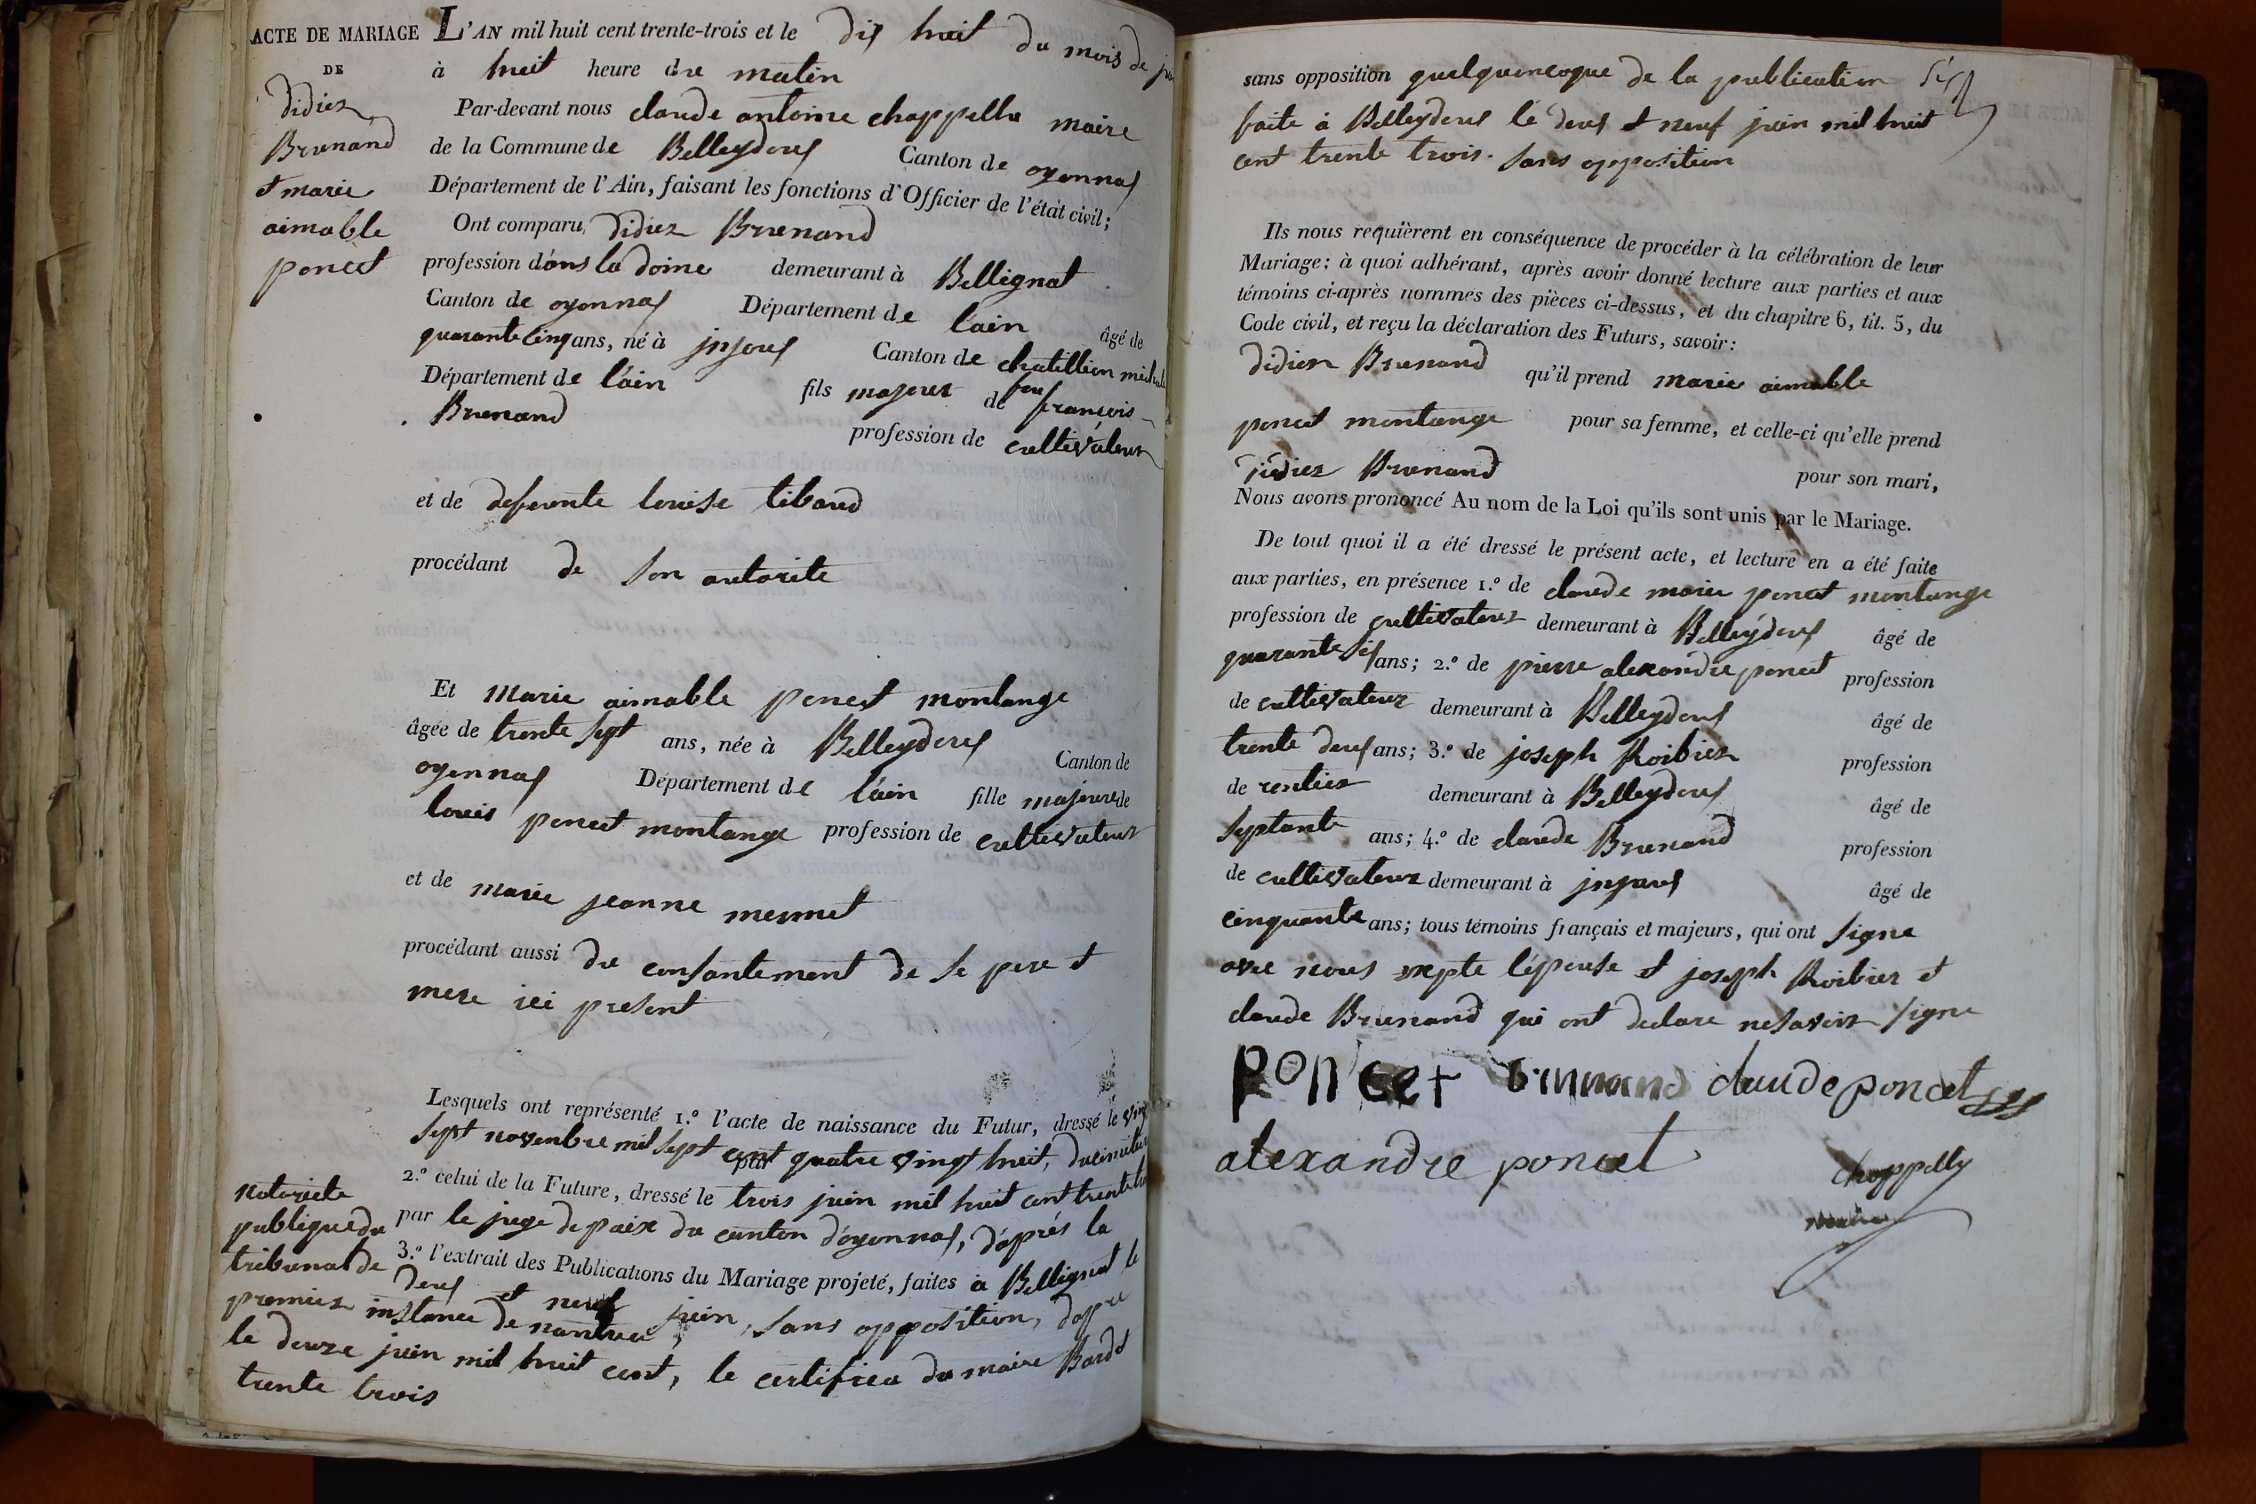 ACTE DE MARIAGE
DE
didier
Brunand
et marie
aimable
poncet
L'AN mil huit cent trente-trois et le dix huit du mois de
à huit heure du matin
Par-devant nous claude antoine chappellu maire
de la Commune de Belleydoux Canton de oyonnax
Département de l'Ain, faisant les fonctions d'Officier de l'état civil;
Ont comparu didier Brunand
profession dans la doine demeurant à Bellignat
Canton de oyonnax Département de l'ain âgé de
quarante cinq ans, né à injoux Canton de chatillion michal
Département de l'ain fils majeur de feu francois
Brunand profession de cultivateur
et de defunte louise tiband
procédant de son autorite
Et marie aimable poncet montange
âgée de trente sept ans, née à Belleydoux Canton de
oyonnax Département de l'ain fille majeure de
louis poncet montange profession de cultivateur
et de marie jeanne mermet
procédant aussi du consantement de se pere et
mere ici present
Lesquels ont représenté 1.º l'acte de naissance du Futur, dressé le
sept novembre mil sept cent quatre vingt huit,
par
2.º celui de la Future, dressé le trois juin mil huit cent trente
par le juge de paix du canton d'oyonnax, d'après la
notoriete
publique du
tribunal de
premier instance de nantua,
le douze juin mil huit cent,
trente trois
3.º l'extrait des Publications du Mariage projeté, faites à Bellignat le
deux et neuf juin, sans opposition, dapre
le certifica du maire Bardet
sans opposition quelquoncoque de la publication
faite à Belleydoux le deux et neuf juin mil huit
cent trente trois. sans opposition
Ils nous requièrent en conséquence de procéder à la célébration de leur
Mariage; à quoi adhérant, après avoir donné lecture aux parties et aux
témoins ci-après nommés des pièces ci-dessus, et du chapitre 6, tit. 5, du
Code civil, et reçu la déclaration des Futurs, savoir:
didier Brunand qu'il prend marie aimable
poncet montange pour sa femme, et celle-ci qu'elle prend
didier Brunand pour son mari,
Nous avons prononcé Au nom de la Loi qu'ils sont unis par le Mariage.
De tout quoi il a été dressé le présent acte, et lecture en a été faite
aux parties, en présence 1.º de claude marie poncet montange
profession de cultivateur demeurant à Belleydoux âgé de
quarante six ans; 2.º de pierre alexandre poncet profession
de cultivateur demeurant à Belleydoux âgé de
trente deux ans; 3.º de joseph Roibier profession
de rentier demeurant à Belleydoux âgé de
septante ans; 4.º de claude Brunand profession
de cultivateur demeurant à injoux âgé de
cinquante ans; tous témoins français et majeurs, qui ont signe
avec nous exepte l'epouse et joseph Roibier et
claude Brunand qui ont declare ne savoir signe
poncet brunand claude poncet
alexandre poncet
chappelly
maire